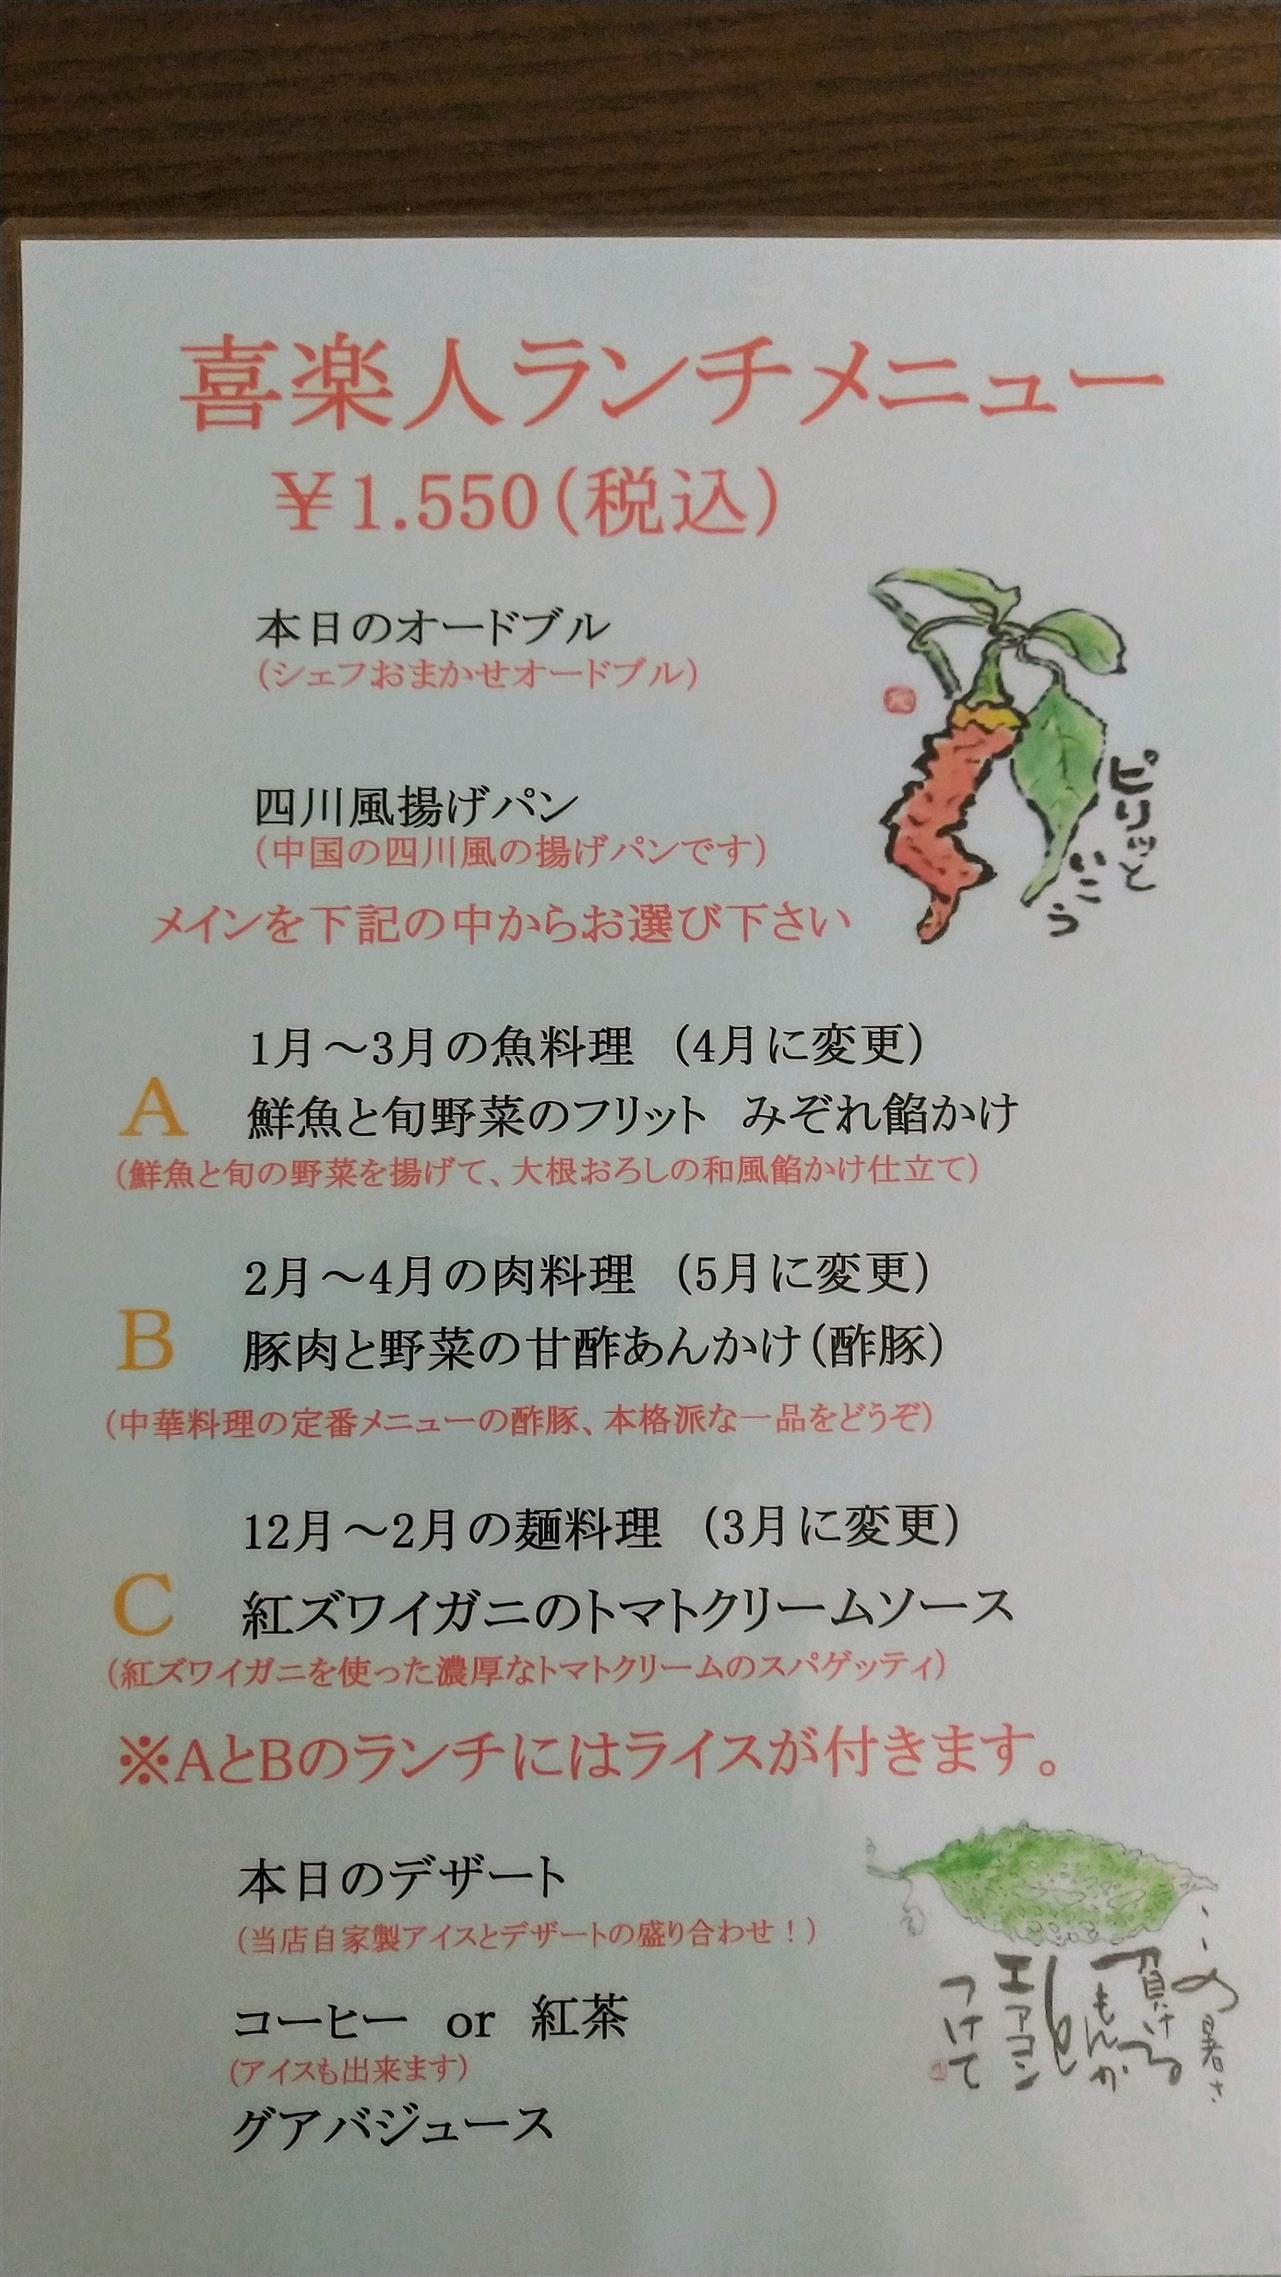 喜楽人ランチメニュー
￥1.550(税込)
本日のオードブル
(シェフおまかせオードブル)
四川風揚げパン
(中国の四川風の揚げパンです)
ピリッと
いこう
メインを下記の中からお選び下さい
1月～3月の魚料理 (4月に変更)
A 鮮魚と旬野菜のフリット みぞれ餡かけ
(鮮魚と旬の野菜を揚げて、大根おろしの和風餡かけ仕立て)
2月～4月の肉料理 (5月に変更)
B 豚肉と野菜の甘酢あんかけ(酢豚)
(中華料理の定番メニューの酢豚、本格派な一品をどうぞ)
12月～2月の麺料理 (3月に変更)
C 紅ズワイガニのトマトクリームソース
(紅ズワイガニを使った濃厚なトマトクリームのスパゲッティ)
※AとBのランチにはライスが付きます。
本日のデザート
(当店自家製アイスとデザートの盛り合わせ！)
コーヒー or 紅茶
(アイスも出来ます)
グアバジュース
この暑さ
負ける
もんか
エアコン
つけて